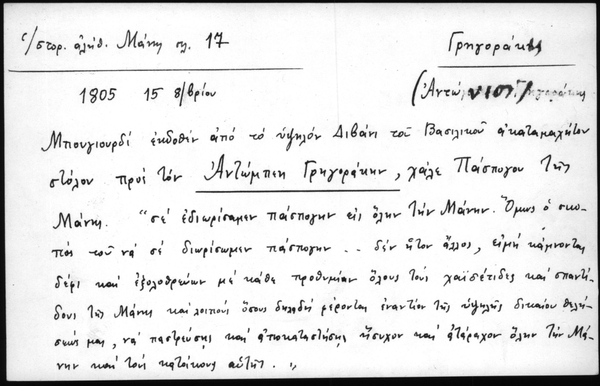 ἱ/στορ. ἀλήθ. Μάνης σελ. 17
Γρηγοράκης
1805 15 8/βρίου
(Ἀντώνιος Γρηγοράκης
Μπουγιουρδί ἐκδοθέν ἀπό τό ὑψηλόν Διβάνι τοῦ Βασιλικοῦ ἀκαταμαχήτου
στόλου πρός τόν Ἀντώμπεη Γρηγοράκην, χάλε Πάσπογου τῆς
Μάνης. "σέ ἐδιωρίσαμεν πάσπογην εἰς ὅλην τήν Μάνην. Ὅμως ὁ σκο-
πός τοῦ νά σέ διωρίσωμεν πάσπογην .. δέν ἦτον ἄλλος, εἰμή κάμνοντας
δέφι καί ἐξολοθρεύων μέ κάθε προθυμίαν ὅλους τούς χαϊσέτιδες καί σπαντί-
δους τῆς Μάνης καί λοιπούς ὅσους δηλαδή φέρονται ἐναντίον τῆς ὑψηλῆς δικαίου θελή-
σεώς μας, νά παστρεύσης καί ἀποκαταστήσης ἥσυχον καί ἀτάραχον ὅλην τήν Μά-
νην καί τούς κατοίκους αὐτῆς. "